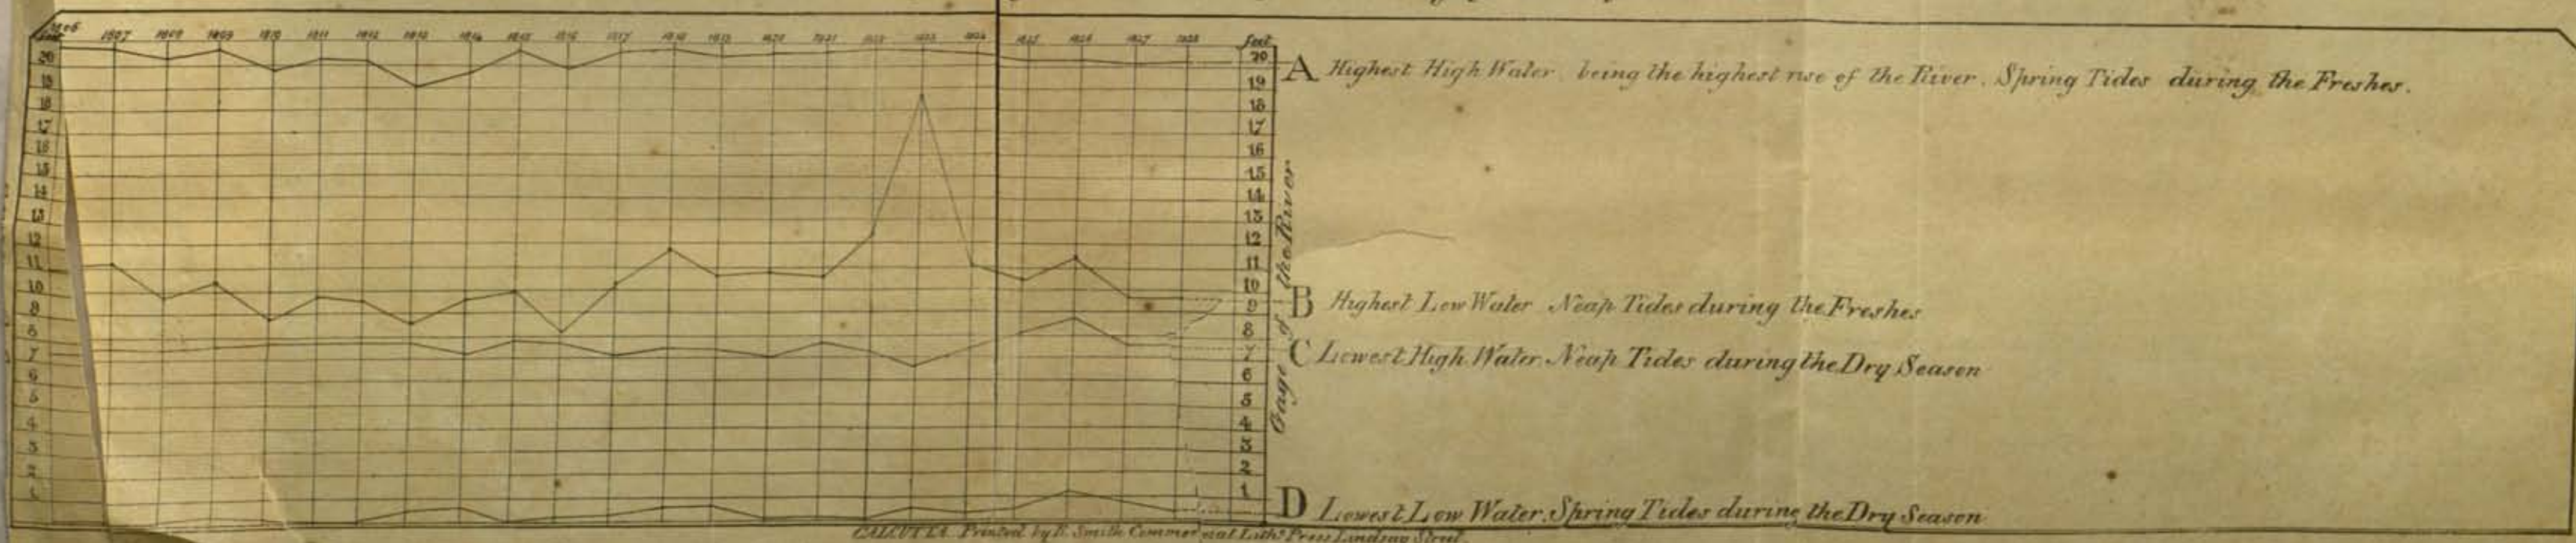 1806 1807 1808 1809 1810 1811 1812 1813 1814 1815 1816 1817 1818 1819 1820 1821 1822 1823 1824 1825 1826 1827 1828
feet
20
19
18
17
16
15
14
13
12
11
10
9
8
7
6
5
4
3
2
1
feet
20
19
18
17
16
15
14
13
12
11
10
9
8
7
6
5
4
3
2
1
Gage of the River
A Highest High Water being the highest rise of the River. Spring Tides during the Freshes.
B Highest Low Water Neap Tides during the Freshes
C Lowest High Water Neap Tides during the Dry Season
D Lowest Low Water Spring Tides during the Dry Season
CALCUTTA Printed by E. Smith Commercial Litho. Press Lindsay Street.